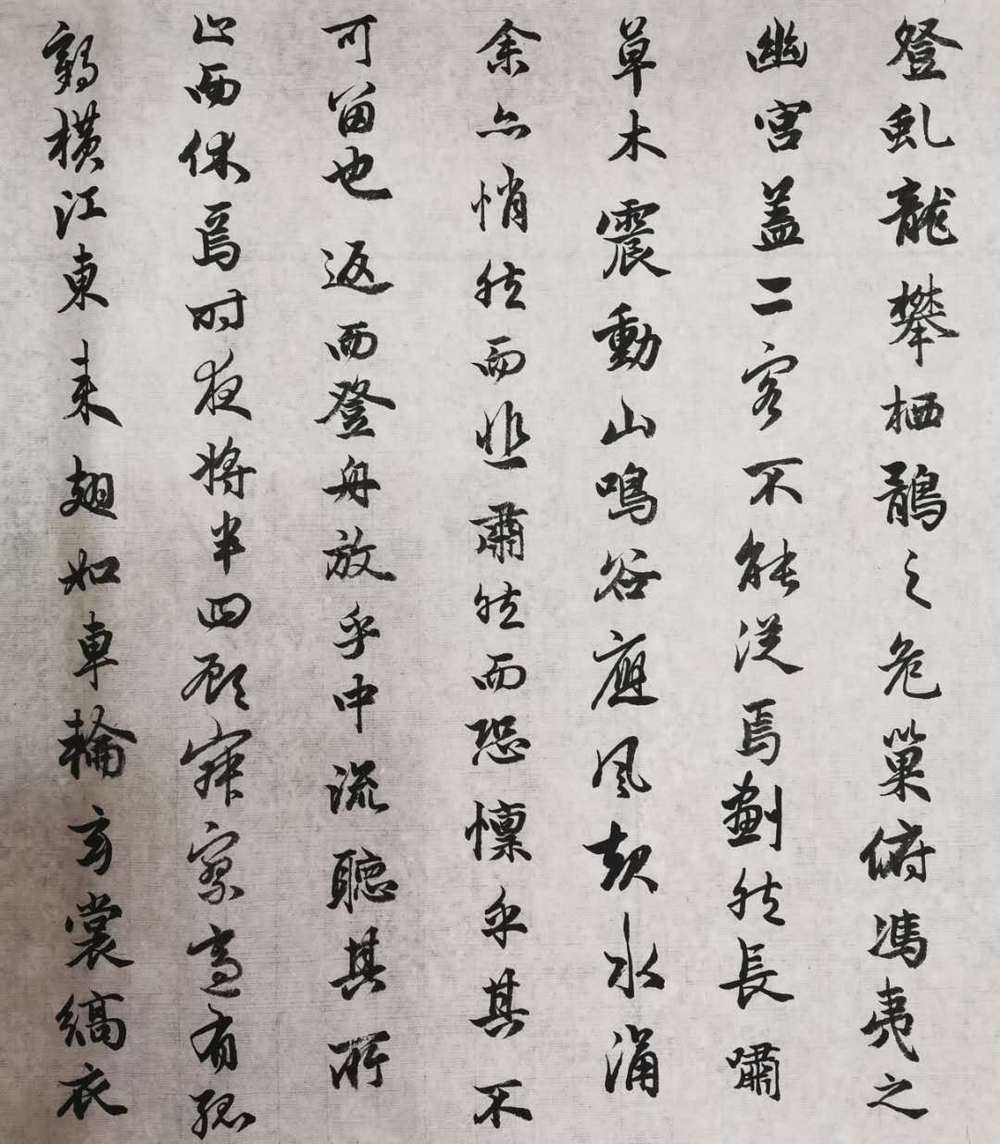 登虬龍攀栖鶻之危巢俯馮夷之
幽宮盖二客不能从焉劃然長嘯
草木震動山鳴谷應風起水涌
余亦悄然而悲肅然而恐懍乎其不
可留也返而登舟放乎中流聽其所
止而休焉时夜將半四顧寂寥適有孤
鶴横江東来翅如車輪玄裳縞衣